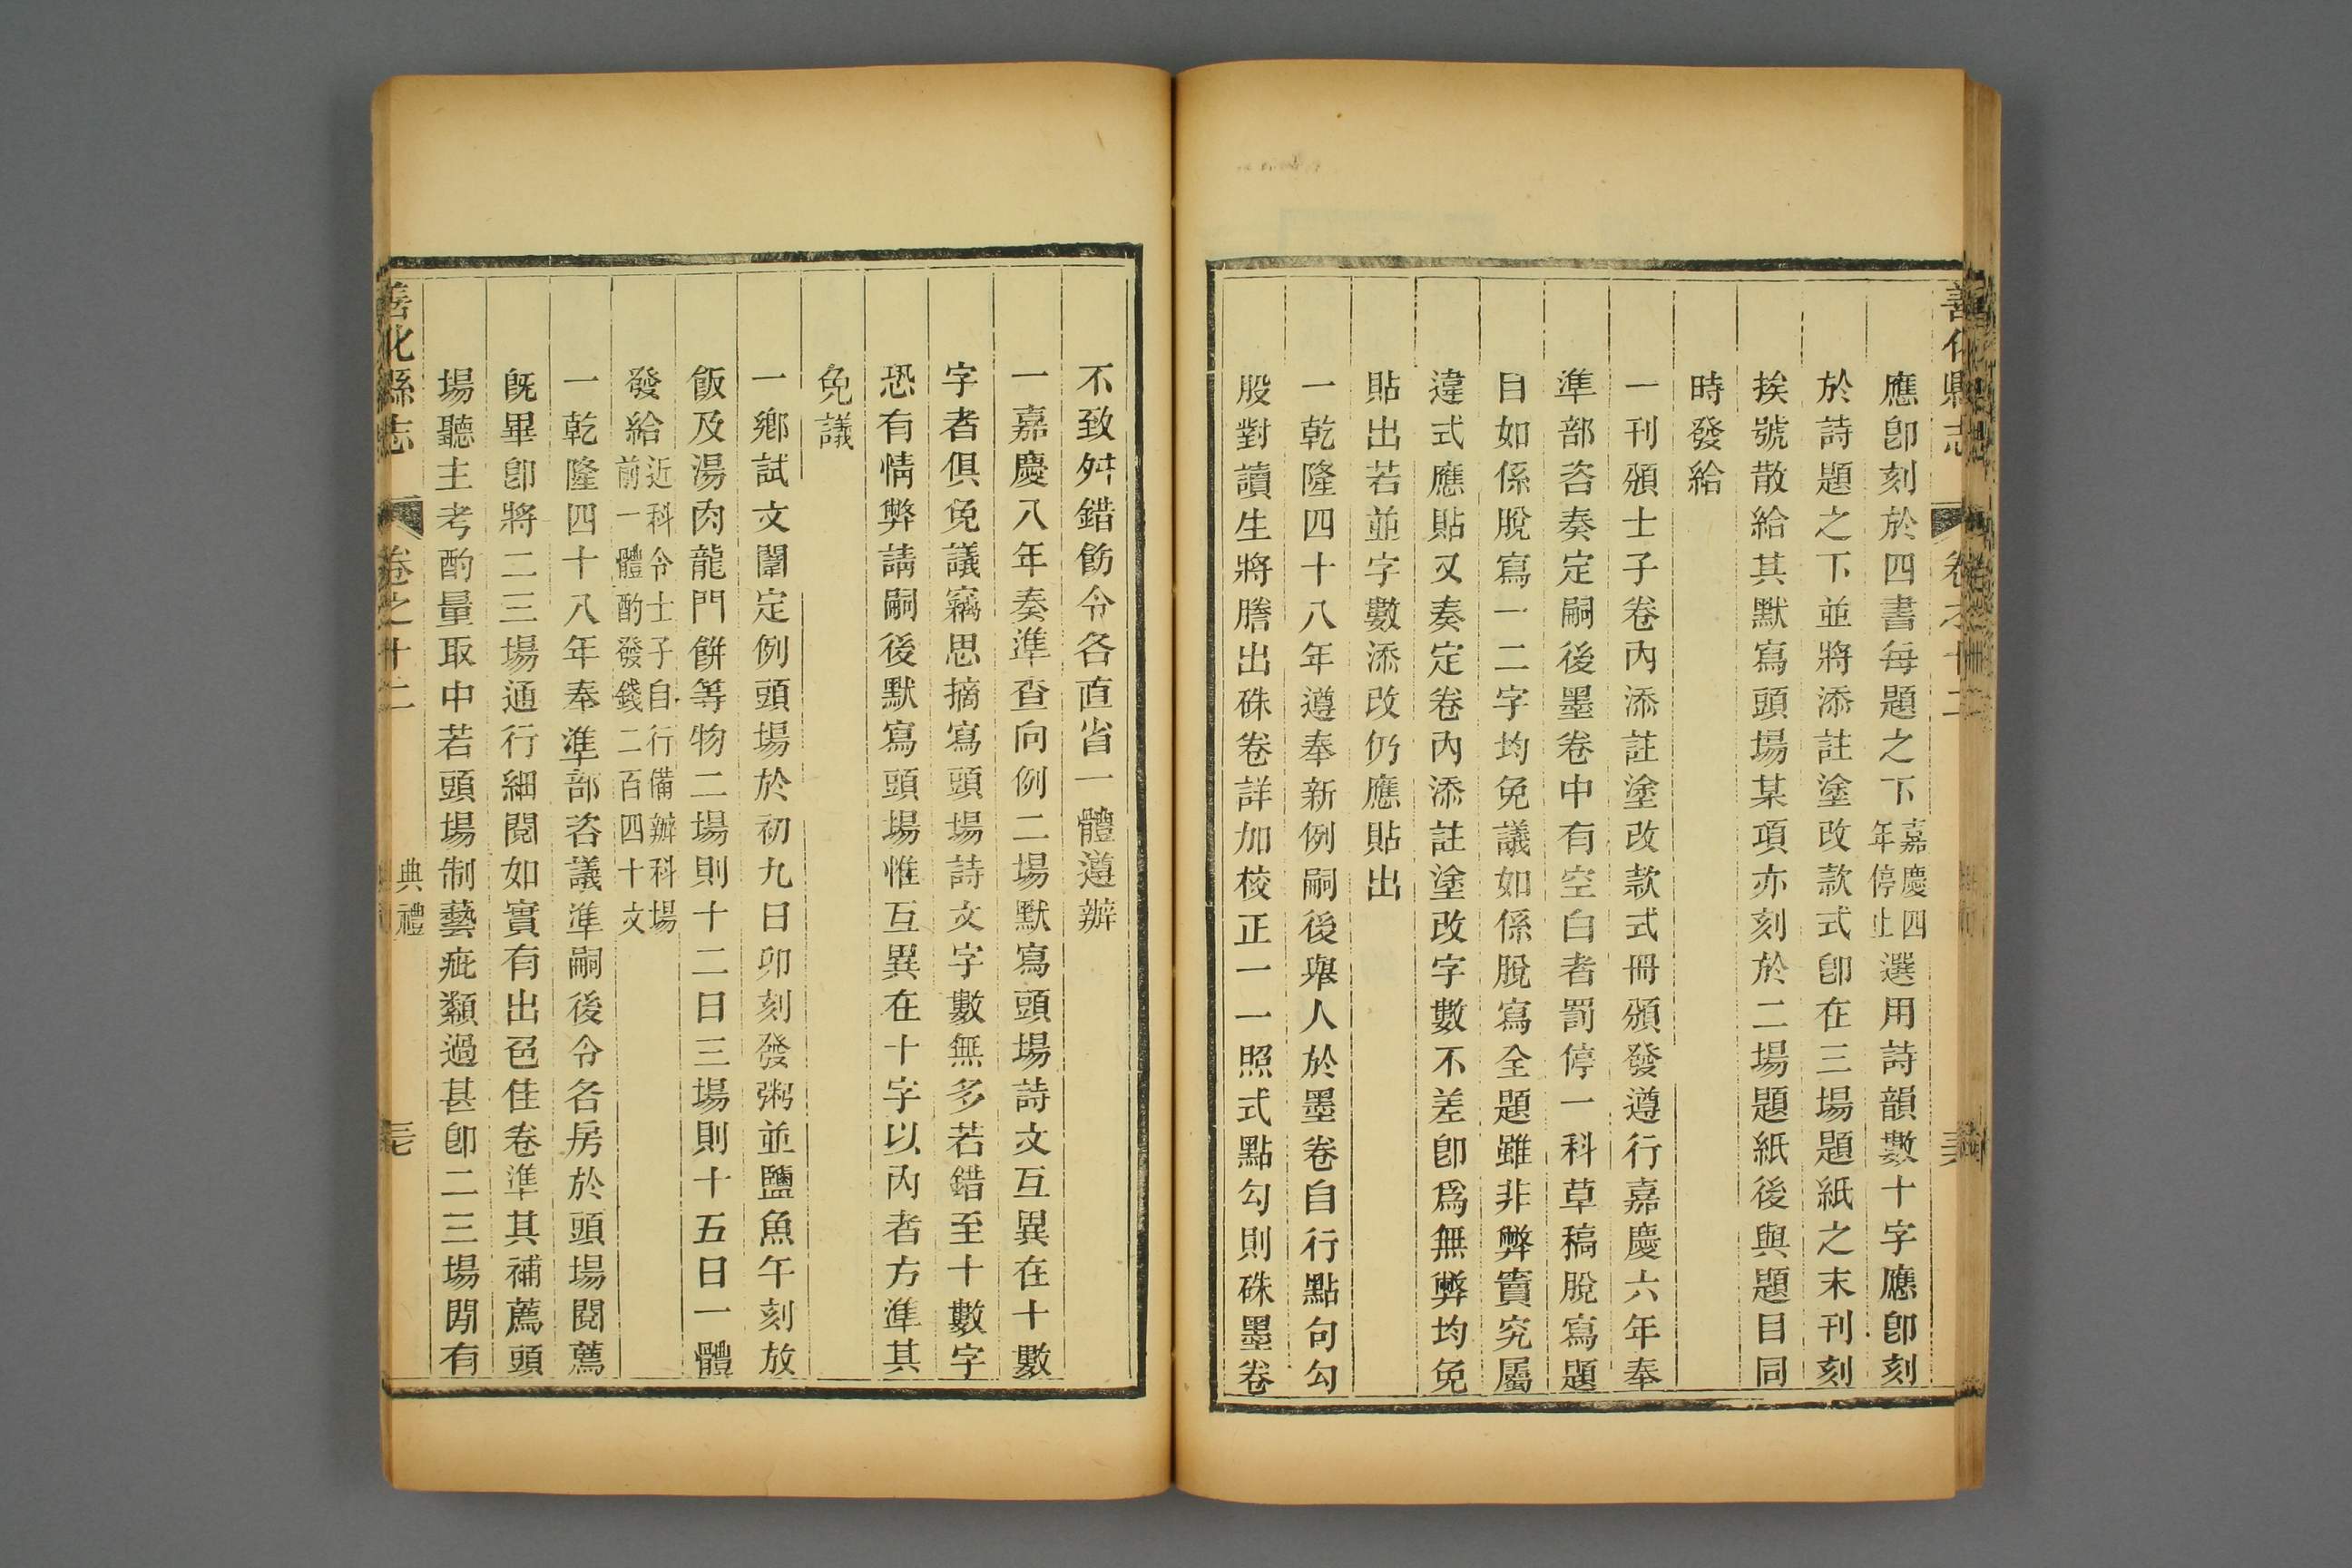 善化縣志
卷之十二
應卽刻於四書每題之下嘉慶四年停止選用詩韻數十字應卽刻
於詩題之下並將添註塗改款式卽在三場題紙之末刊刻
挨號散給其默寫頭場某項亦刻於二場題紙後與題目同
時發給
一刊頒士子卷內添註塗改款式冊頒發遵行嘉慶六年奉
準部咨奏定嗣後墨卷中有空白者罰停一科草稿脫寫題
目如係脫寫一二字均免議如係脫寫全題雖非弊竇究屬
違式應貼又奏定卷內添註塗改字數不差卽爲無弊均免
貼出若並字數添改仍應貼出
一乾隆四十八年遵奉新例嗣後舉人於墨卷自行點句勾
股對讀生將謄出硃卷詳加校正一一照式點勾則硃墨卷
不致舛錯飭令各直省一體遵辦
一嘉慶八年奏準查向例二場默寫頭場詩文互異在十數
字者俱免議竊思摘寫頭場詩文字數無多若錯至十數字
恐有情弊請嗣後默寫頭場惟互異在十字以內者方準其
免議
一鄉試文闈定例頭場於初九日卯刻發粥並鹽魚午刻放
飯及湯肉龍門餅等物二場則十二日三場則十五日一體
發給近科令士子自行備辦科場前一體酌發錢二百四十文
一乾隆四十八年奉準部咨議準嗣後令各房於頭場閱薦
旣畢卽將二三場通行細閱如實有出色佳卷準其補薦頭
場聽主考酌量取中若頭場制藝疵纇過甚卽二三場閒有
善化縣志
卷之十二
典禮